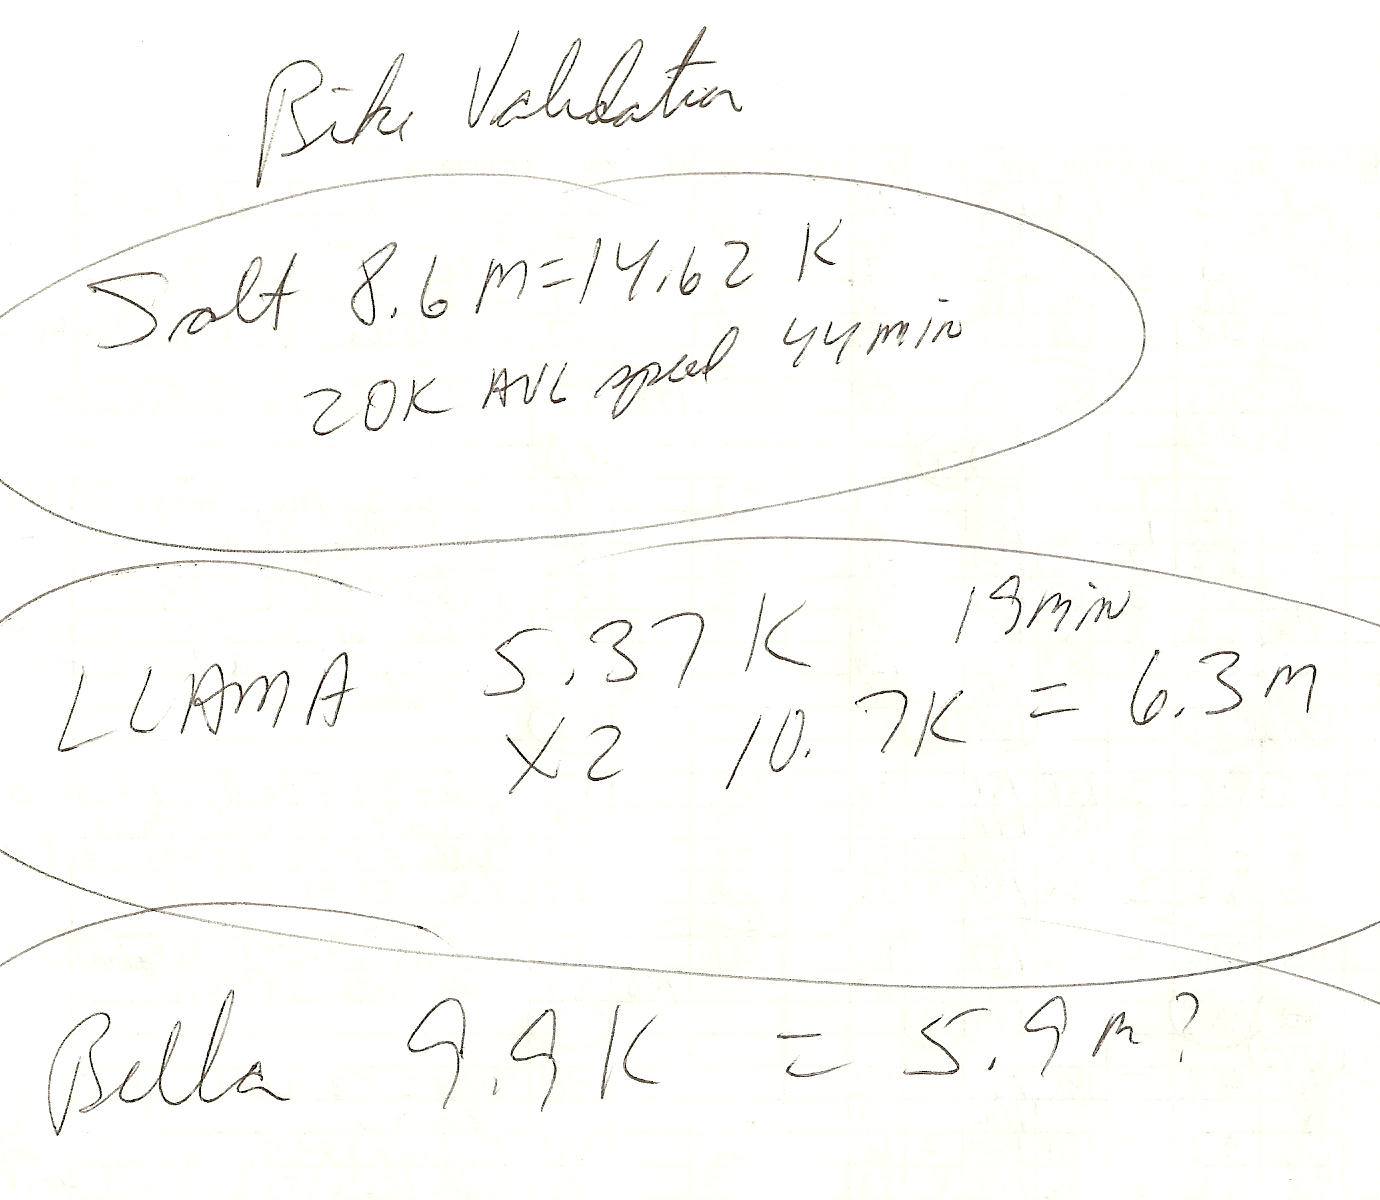 Bike Validation
Salt 8.6 m=14.62 K
20K AVG speed 44min
LLAMA 5.37 K 19min
X2 10.7K = 6.3m
Bella 9.9K = 5.9m?